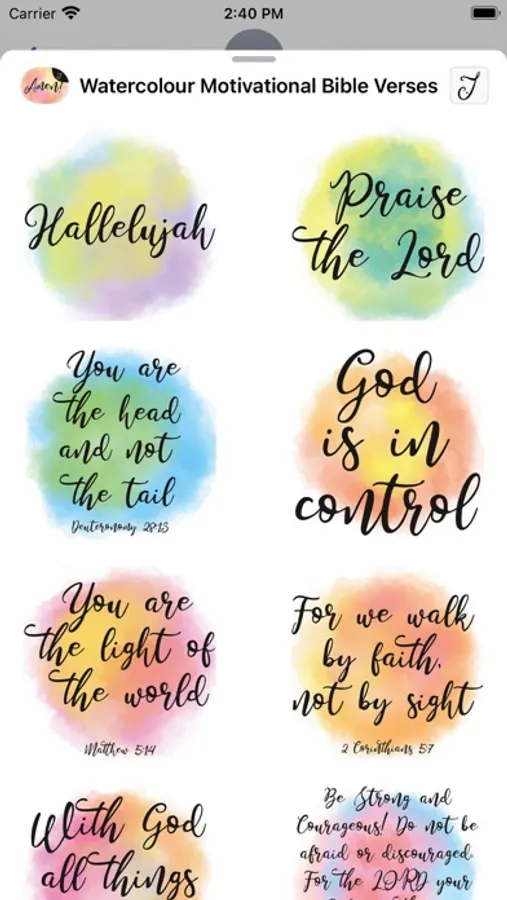 Carrier
2:40 PM
Amen!
Watercolour Motivational Bible Verses
J
Hallelujah
Praise
the Lord
You are
the head
and not
the tail
Deuteronomy 28:13
God
is in
control
You are
the light of
the world
Matthew 5:14
For we walk
by faith,
not by sight
2 Corinthians 5:7
With God
all things
Be Strong and
Courageous! Do not be
afraid or discouraged.
For the LORD your